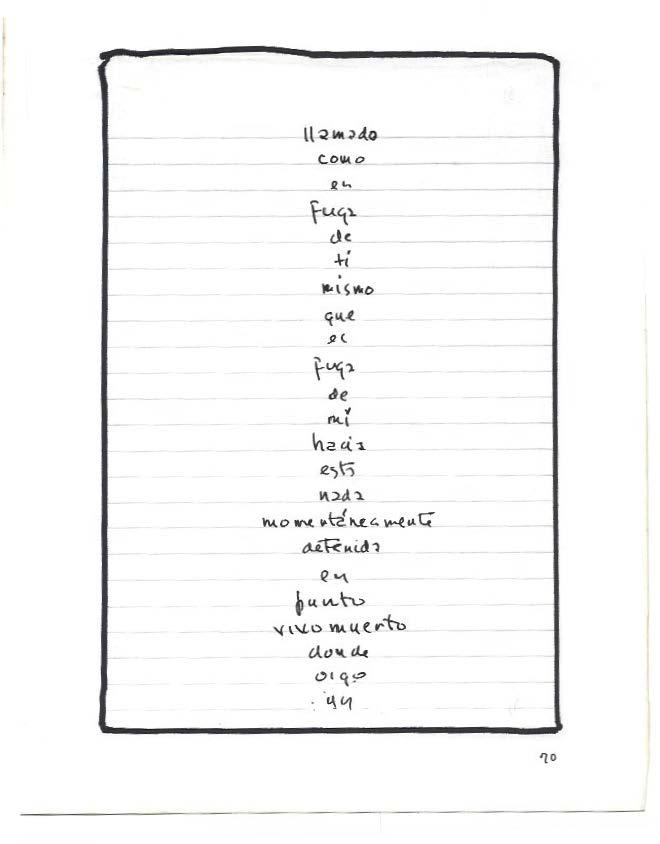 llamado
como
en
fuga
de
ti
mismo
que
es
fuga
de
mí
hacia
esta
nada
momentáneamente
detenida
en
punto
vivomuerto
donde
oigo
un
70